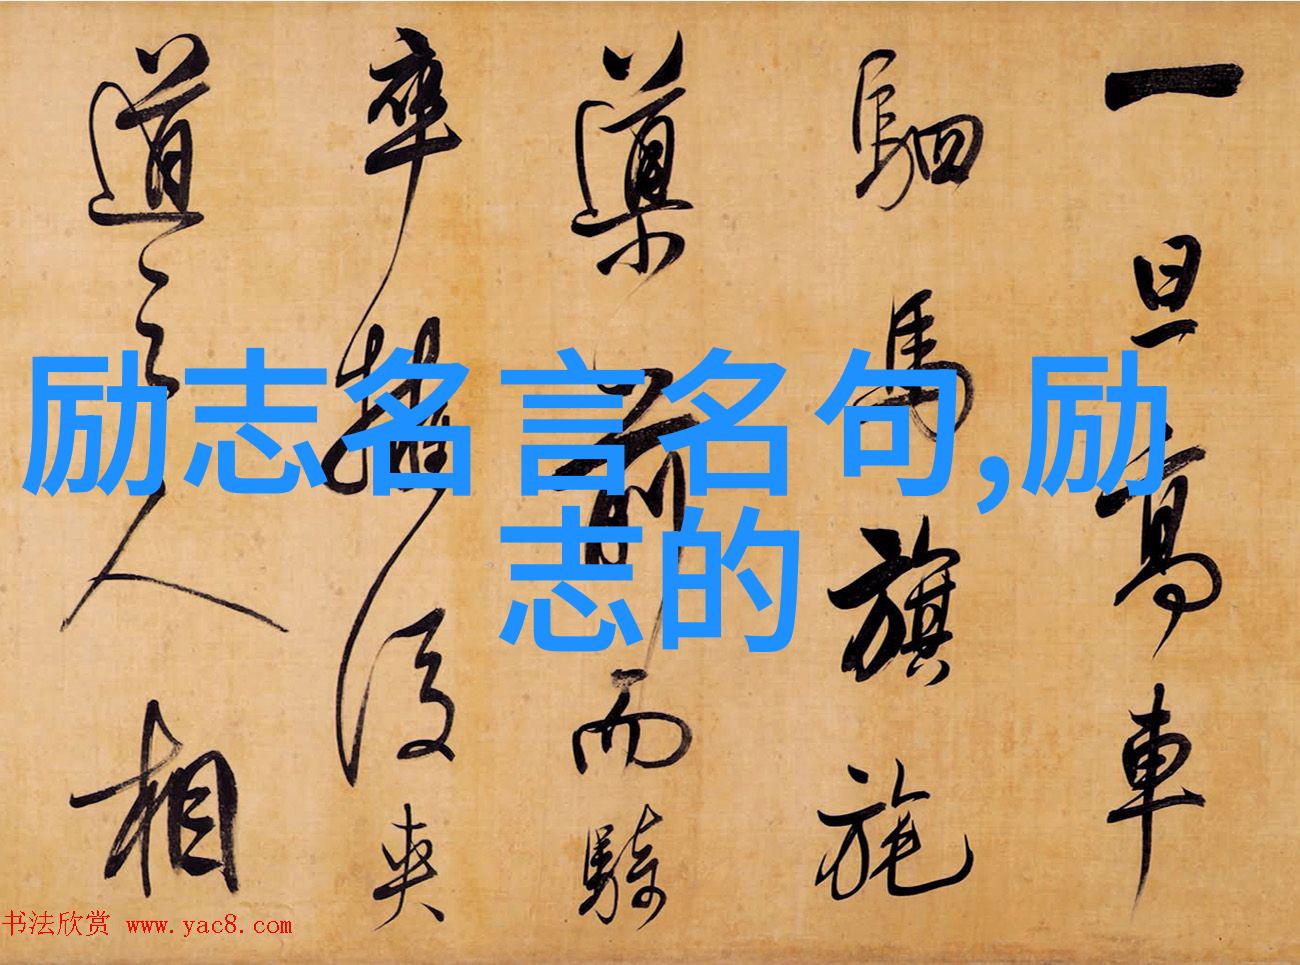 一旦高車
駟馬旗旄
導前而騎
卒擁後夾
道之人相
励志名言名句,励
志的
书法欣赏 www.yac8.com